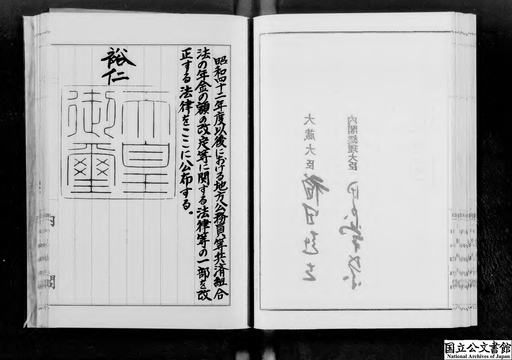 昭和四十二年度以後における地方公務員等共済組合
法の年金の額の改定等に関する法律等の一部を改
正する法律をここに公布する。
裕仁
天皇
御璽
内閣
内閣総理大臣
大蔵大臣
国立公文書館
National Archives of Japan